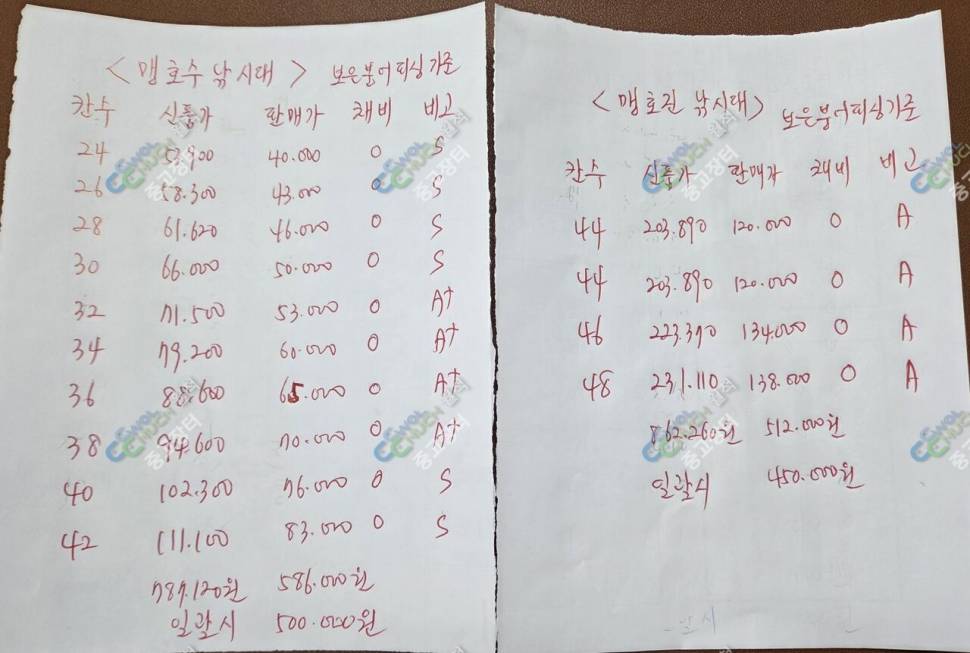 <맹호수 낚시대> 보은붕어피싱기준
칸수 신품가 판매가 채비 비고
24 53,900 40.000 0 S
26 58.300 43.000 0 S
28 61.620 46.000 0 S
30 66.000 50.000 0 S
32 71.500 53.000 0 A+
34 79.200 60.000 0 A+
36 88.600 65.000 0 A+
38 94.600 70.000 0 A+
40 102.300 76.000 0 S
42 111.100 83.000 0 S
787.120원 586.000원
일괄시 500.000원
<맹호진 낚시대> 보은붕어피싱기준
칸수 신품가 판매가 채비 비고
44 203.890 120.000 0 A
44 203.890 120.000 0 A
46 223.370 134.000 0 A
48 231.110 138.000 0 A
862.260원 512.000원
일괄시 450.000원
중고장터